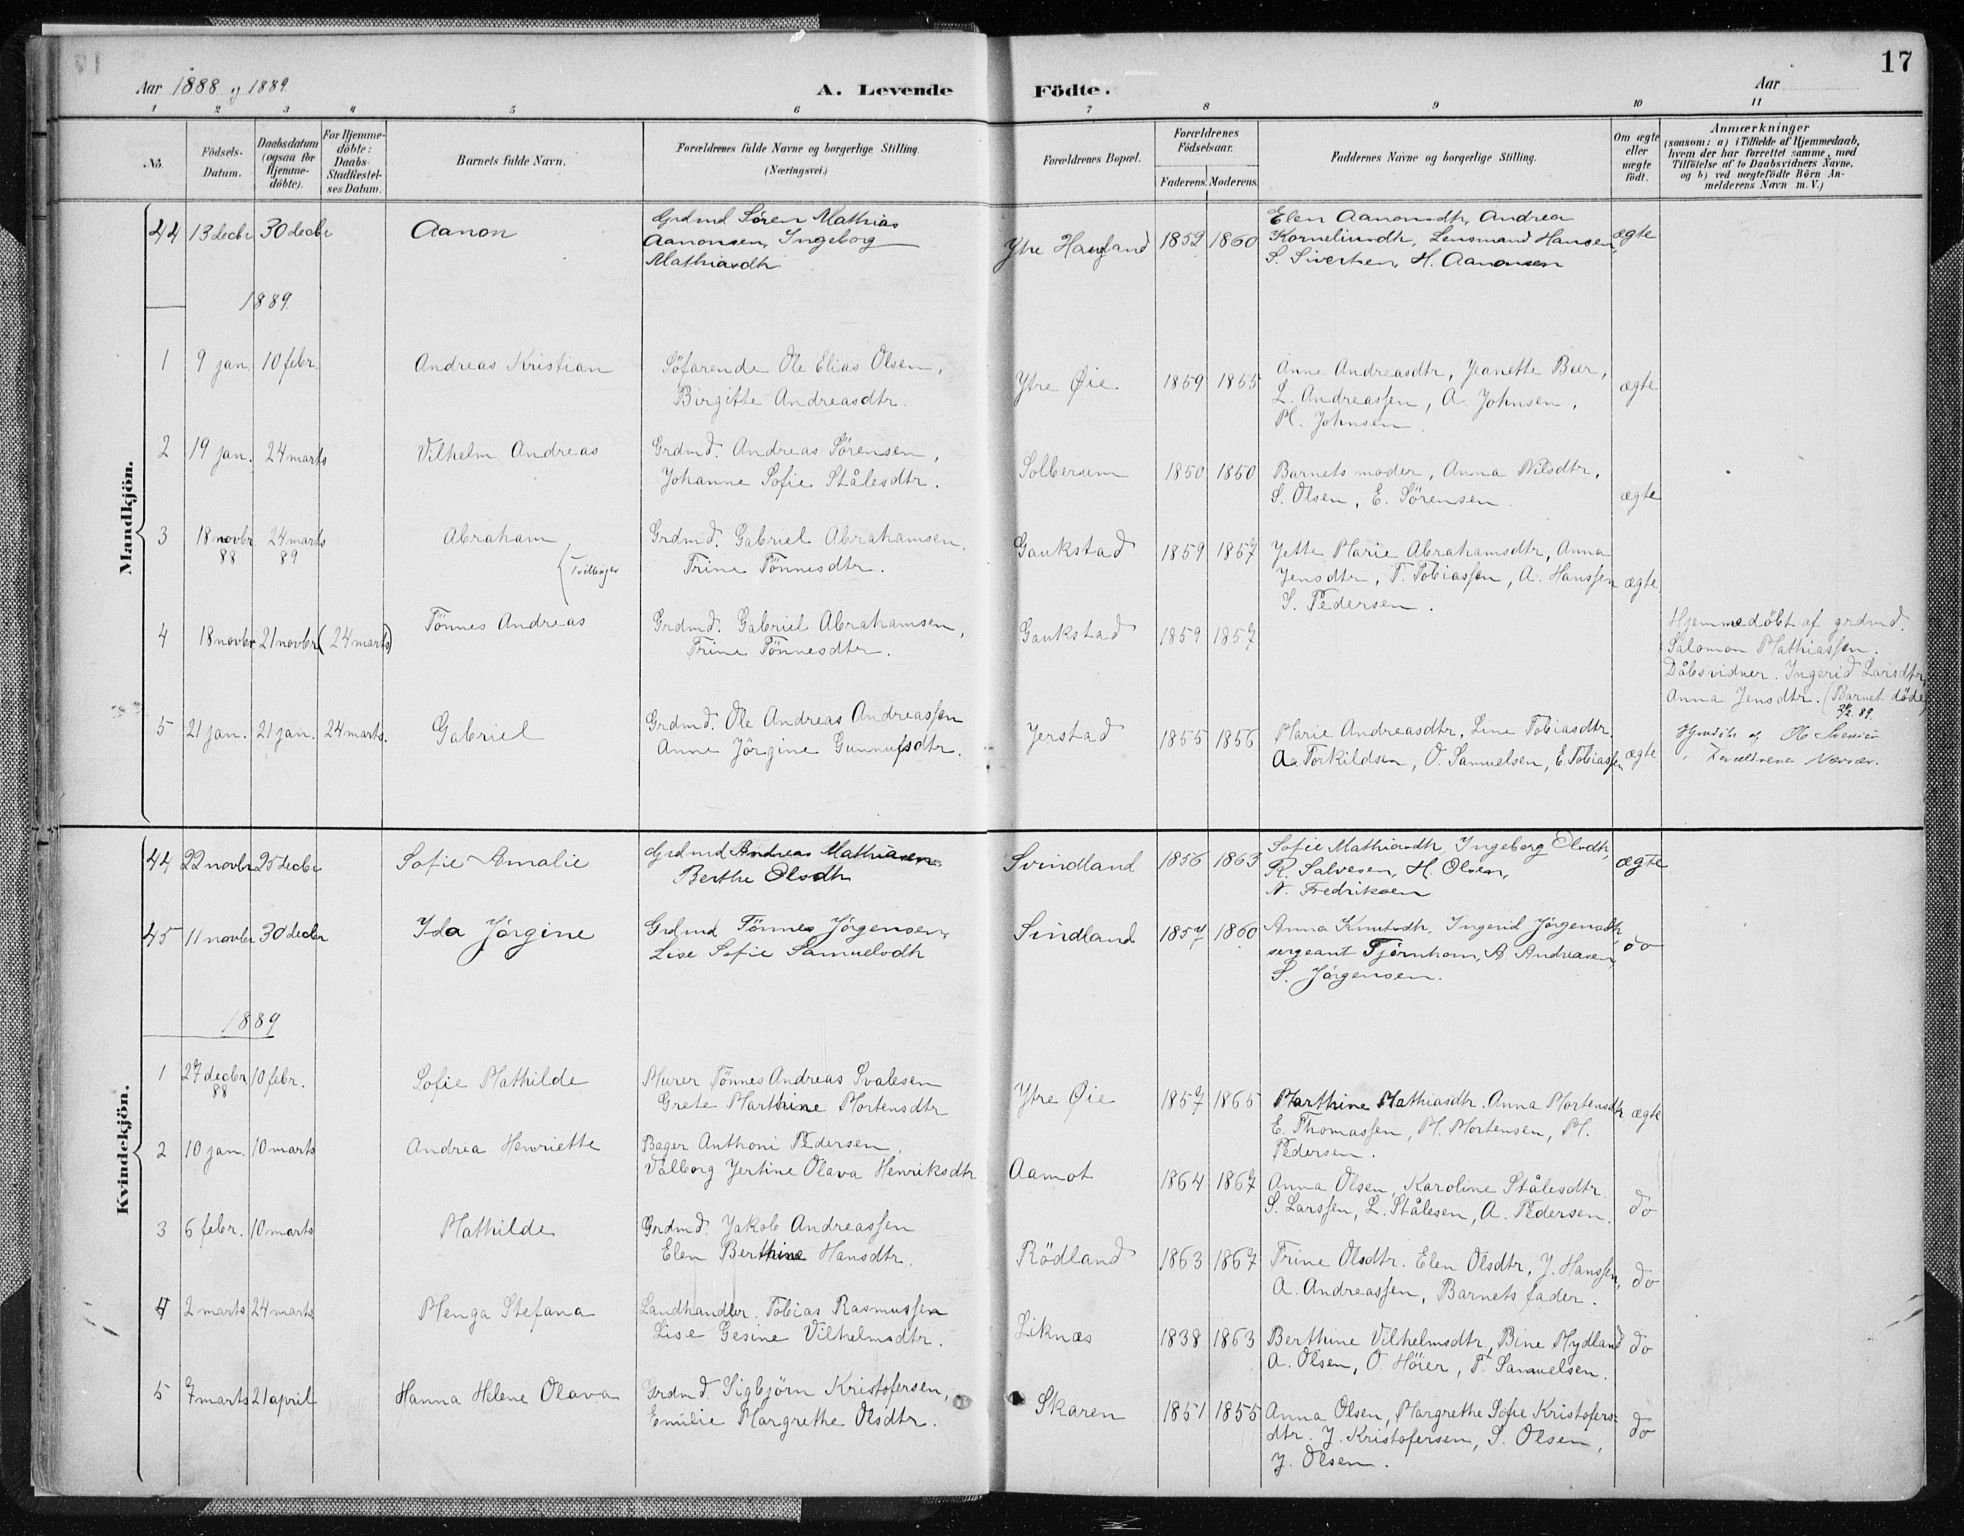 17
Aar 1888 og 1889.
A. Levende Födte.
Aar
1 2 3 4 5 6 7 8 9 10 11
No.
Födsels-Datum.
Daabsdatum (ogsaa for Hjemme-döbte).
For Hjemme-döbte: Daabs-Stadfæstel-ses Datum.
Barnets fulde Navn.
Forældrenes fulde Navne og borgerlige Stilling.
(Næringsvei.)
Forældrenes Bopæl.
Forældrenes Födselsaar.
Faderens. Moderens.
Faddernes Navne og borgerlige Stilling.
Om ægte eller uægte födt.
Anmærkninger
(saasom: a) i Tilfælde af Hjemmedaab, hvem der har forrettet samme, med Tilföielse af to Daabsvidners Navne. og b) ved uægtefödte Börn An-melderens Navn m. V.)
Mandkjön.
44 13 decbr 30 decbr Aanon Grdmd Søren Mathias Aanonsen, Ingeborg Mathiasdtr. Ytre Haugland 1852 1860 Elen Aanonsdtr, Andrea Korneliusdtr, Lensmand Hansen, S. Sivertsen, H. Aanonsen ægte
1889.
1 9 jan. 10 febr. Andreas Kristian Söfarende Ole Elias Olsen, Birgitte Andreasdtr. Ytre Øie 1859 1855 Anne Andreasdtr, Jeanette Beer, L. Andreassen, A. Johnsen, M. Johnsen. ægte
2 19 jan. 24 marts Vilhelm Andreas Grdmd. Andreas Sörensen, Johanne Sofie Stålesdtr. Solberum 1850 1850 Barnets moder, Anna Nilsdtr, S. Olsen, E. Sörensen. ægte
3 18 novbr 88 24 marts 89 Abraham Tvillinger Grdmd. Gabriel Abrahamsen, Trine Tönnesdtr. Gaukstad 1859 1857 Jette Marie Abrahamsdtr, Anna Jensdtr, T. Tobiassen, A. Hanssen S. Pedersen. ægte
4 18 novbr 21 novbr (24 marts) Tönnes Andreas Grdmd. Gabriel Abrahamsen, Trine Tönnesdtr. Gaukstad 1859 1857 Hjemmedöbt af grdmd. Salomon Mathiassen. Dåbsvidner. Ingerid Larsdtr, Anna Jensdtr. (Barnet döde 89.)
5 21 jan. 21 jan. 24 marts. Gabriel Grdmd. Ole Andreas Andreassen Anne Jörgine Gunnufsdtr. Jerstad 1855 1856 Marie Andreasdtr, Line Tobiasdtr. Aa Torkildsen, O. Samuelsen, E. Tobiassen ægte Hjmdöbt af
Kvindekjön.
44 22 novbr 25 decbr Sofie Amalie Grdmd Andreas Mathiasen Berthe Olsdtr Svindland 1856 1863 Sofie Mathiasdtr, Ingeborg Olsdtr, R. Salvesen, H. Olsen, N. Fredriksen ægte
45 11 novbr 30 decbr Ida Jörgine Grdmd Tönnes Jörgensen, Lise Sofie Samuelsdtr Sindland 1857 1860 Anna Knutsdtr, Ingerid Jörgensdtr, sergeant Tjörnhom, A Andreasen, S. Jörgensen. do
1889
1 27 decbr 88 10 febr. Sofie Mathilde Murer Tönnes Andreas Svalesen Grete Marthine Mortensdtr Ytre Øie 1857 1865 Marthine Mathiasdtr. Anna Mortensdtr. E. Thomassen, M. Mortensen, M. Pedersen. ægte
2 10 jan. 10 marts Andrea Henriette Bager Anthoni Pedersen, Valborg Jertine Olava Henriksdtr Aamot 1864 1867 Anna Olsen, Karoline Stålesdtr. S. Larssen, L. Stålesen, A. Pedersen. do
3 6 febr. 10 marts Mathilde Grdmd. Jakob Andreassen Elen Berthine Hansdtr. Rödland 1863 1867 Trine Olsdtr. Elen Olsdtr, J. Hanssen, A. Andreassen, Barnets fader. do
4 2 marts 24 marts Menga Stefana Landhandler. Tobias Rasmussen Lise Gesine Vilhelmsdtr. Liknæs 1838 1863 Berthine Vilhelmsdtr, Bine Mydland A. Olsen, O. Höier, T. Samuelsen. do
5 7 marts 21 april Hanna Helene Olava Grdmd. Sigbjörn Kristofersen, Emilie Margrethe Olsdtr. Skaren 1851 1855 Anna Olsen, Margrethe Sofie Kristofers-dtr. J. Kristofersen, S. Olsen, J. Olsen. do